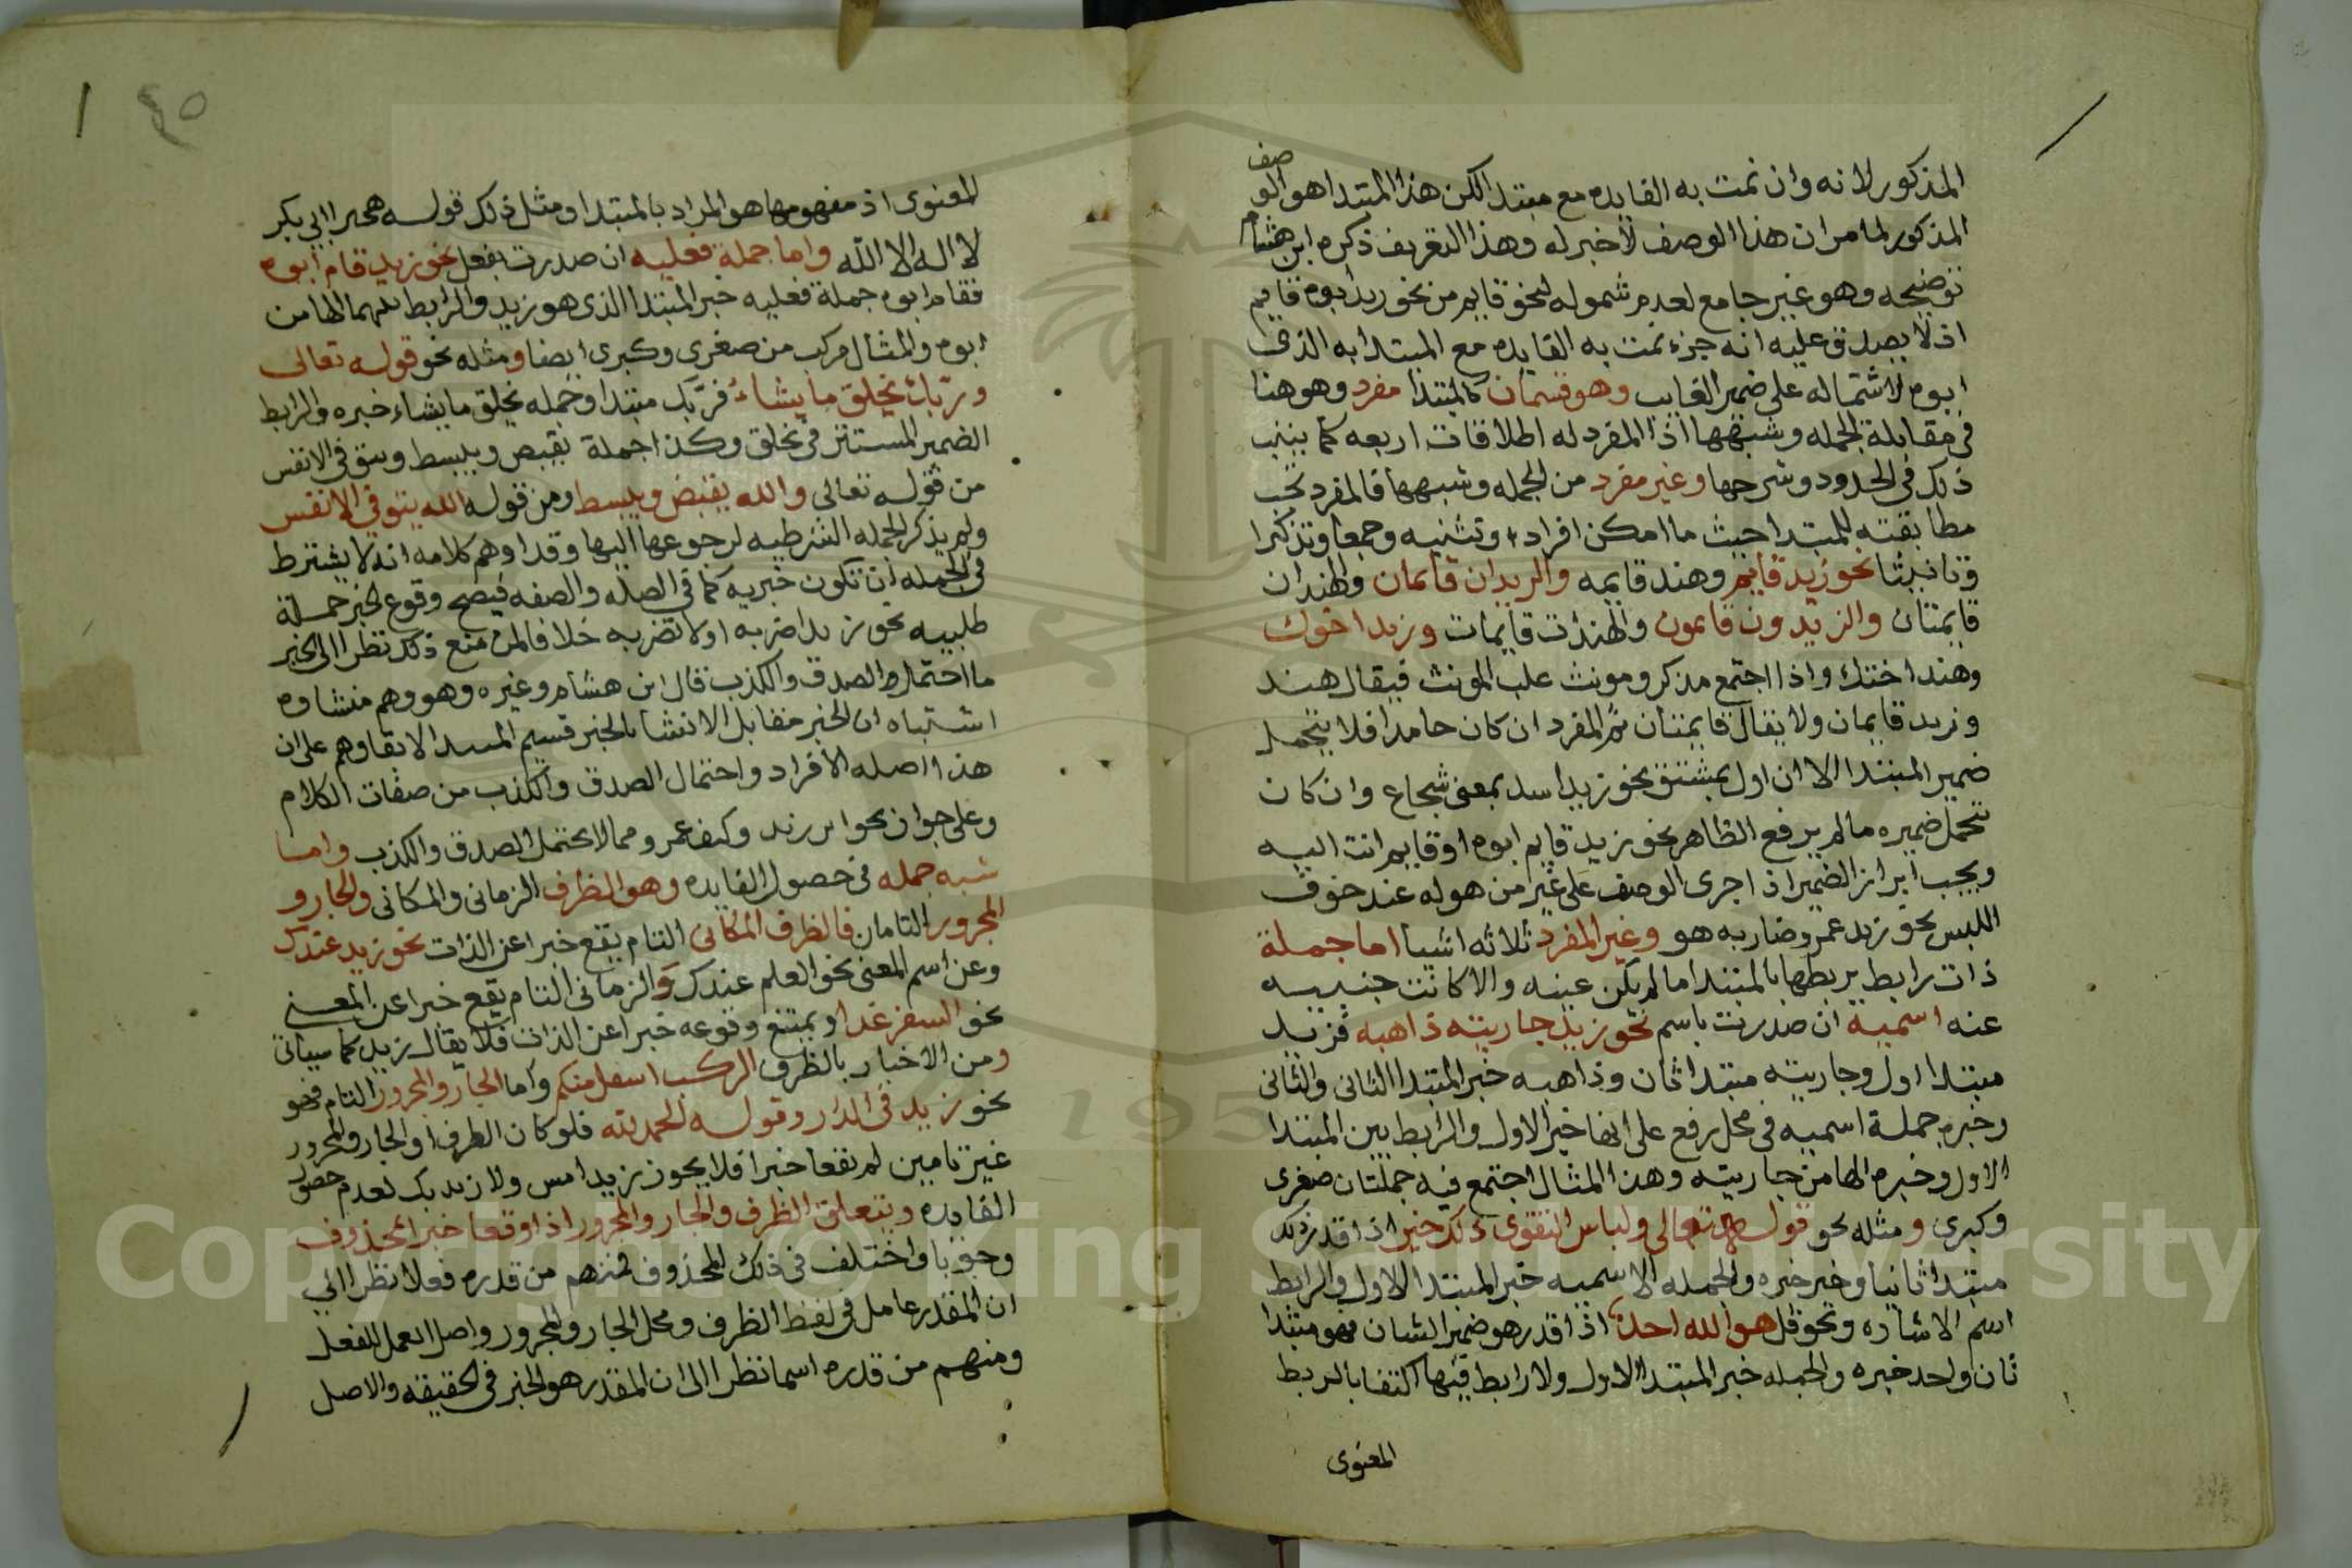 المذكور لانه وان تمت به الفايده مع مبتدا لكن هذا المبتدا هو الوصف
المذكور لما مر ان هذا الوصف لا خبر له وهذا التعريف ذكره ابن هشام
توضيحه وهو غير جامع لعدم شموله لنحو قايم من نحو زيد ابوه قايم
اذ لا يصدق عليه انه جزء تمت به الفايده مع المبتدا به الذى
ابوه لاشتماله على ضمير الغايب وهو قسمان كالمبتدا مفرد وهو هنا
فى مقابلة الجمله وشبهها اذ المفرد له اطلاقات اربعه كما بينت
ذلك فى الحدود وشرحها وغير مفرد من الجمله وشبهها فالمفرد تجب
مطابقته للمبتدا حيث ما امكن افرادا وتثنيه وجمعا وتذكيرا
وتانيثا نحو زيد قايم وهند قايمه والزيدان قايمان والهندان
قايمتان والزيدون قايمون والهندات قايمات وزيد اخوك
وهند اختك واذا اجتمع مذكر ومونث غلب المونث فيقال هند
وزيد قايمان ولا يقال قايمتان ثم المفرد ان كان جامدا فلا يتحمل
ضمير المبتدا الا ان اول بمشتق نحو زيد اسد بمعنى شجاع وان كان
تحمل ضميره ما لم يرفع الظاهر نحو زيد قايم ابوه او قايم انت اليه
ويجب ابراز الضمير اذا جرى الوصف على غير من هو له عند خوف
اللبس نحو زيد عمرو ضاربه هو وغير المفرد ثلاثه اشيا اما جملة
ذات رابط يربطها بالمبتدا ما لم يكن عينه والا كانت جنبيه
عنه اسميه ان صدرت باسم نحو زيد جاريته ذاهبه فزيد
مبتدا اول وجاريته مبتدا ثان وذاهبه خبر المبتدا الثانى والثانى
وخبره جملة اسميه فى محل رفع على انها خبر الاول والرابط بين المبتدا
الاول وخبره الها من جاريته وهذا المثال اجتمع فيه جملتان صغرى
وكبرى ومثله نحو قوله تعالى ولباس التقوى ذلك خير اذا قدر ذلك
مبتدا ثانيا وخير خبره والجمله الاسميه خبر المبتدا الاول والرابط
اسم الاشاره ونحو قل هو الله احد اذا قدر هو ضمير الشان فهو مبتدا
ثان واحد خبره والجمله خبر المبتدا الاول ولا رابط فيها اكتفا بالربط
المعنوى
٤٥
المعنوى اذ مفهومها هو المراد بالمبتدا ومثل ذلك قوله هجيرا ابي بكر
لا اله الا الله واما جملة فعليه ان صدرت بفعل نحو زيد قام ابوه
فقام ابوه جملة فعليه خبر المبتدا الذى هو زيد والرابط بينهما الها من
ابوه والمثال مركب من صغرى وكبرى ايضا ومثله نحو قوله تعالى
وربك يخلق ما يشاء فربك مبتدا وجمله يخلق ما يشاء خبره والرابط
الضمير المستتر فى يخلق وكذا جملة يقبض ويبسط ويتوفى الانفس
من قوله تعالى والله يقبض ويبسط ومن قوله الله يتوفى الانفس
ولم يذكر الجمله الشرطيه لرجوعها اليها وقد اوهم كلامه انه لا يشترط
فى الجمله ان تكون خبريه كما فى الصله والصفه فيصح وقوع الخبر جملة
طلبيه نحو زيد اضربه او لا تضربه خلافا لمن منع ذلك نظرا الى الخبر
ما احتمل الصدق والكذب قال ابن هشام وغيره وهو وهم منشاوه
اشتباه ان الخبر مقابل الانشا بالخبر قسيم المبتدا لاتفاقهم على ان
هذا اصله الافراد واحتمال الصدق والكذب من صفات الكلام
وعلى جواز نحو اين زيد وكيف عمرو مما لا يحتمل الصدق والكذب واما
شبه جمله فى حصول الفايده وهو الظرف الزمانى والمكانى والجار و
المجرور التامان فالظرف المكانى التام يقع خبرا عن الذات نحو زيد عندك
وعن اسم المعنى نحو العلم عندك والزمانى التام يقع خبرا عن المعنى
نحو السفر غدا ويمتنع وقوعه خبرا عن الذات فلا يقال زيد كما سياتى
ومن الاخبار بالظرف الركب اسفل منكم واما الجار والمجرور التام فنحو
نحو زيد فى الدار وقوله الحمد لله فلو كان الظرف او الجار والمجرور
غير تامين لم يقعا خبرا فلا يجوز زيد امس ولا زيد بك لعدم حصول
الفايده ويتعلق الظرف والجار والمجرور اذا وقعا خبرا بمحذوف
وجوبا واختلف فى ذلك المحذوف فمنهم من قدره فعلا نظرا الي
ان المقدر عامل فى لفظ الظرف ومحل الجار والمجرور واصل العمل للفعل
ومنهم من قدره اسما نظرا الى ان المقدر هو الخبر فى الحقيقه والاصل
Copyright © King Saud University
195